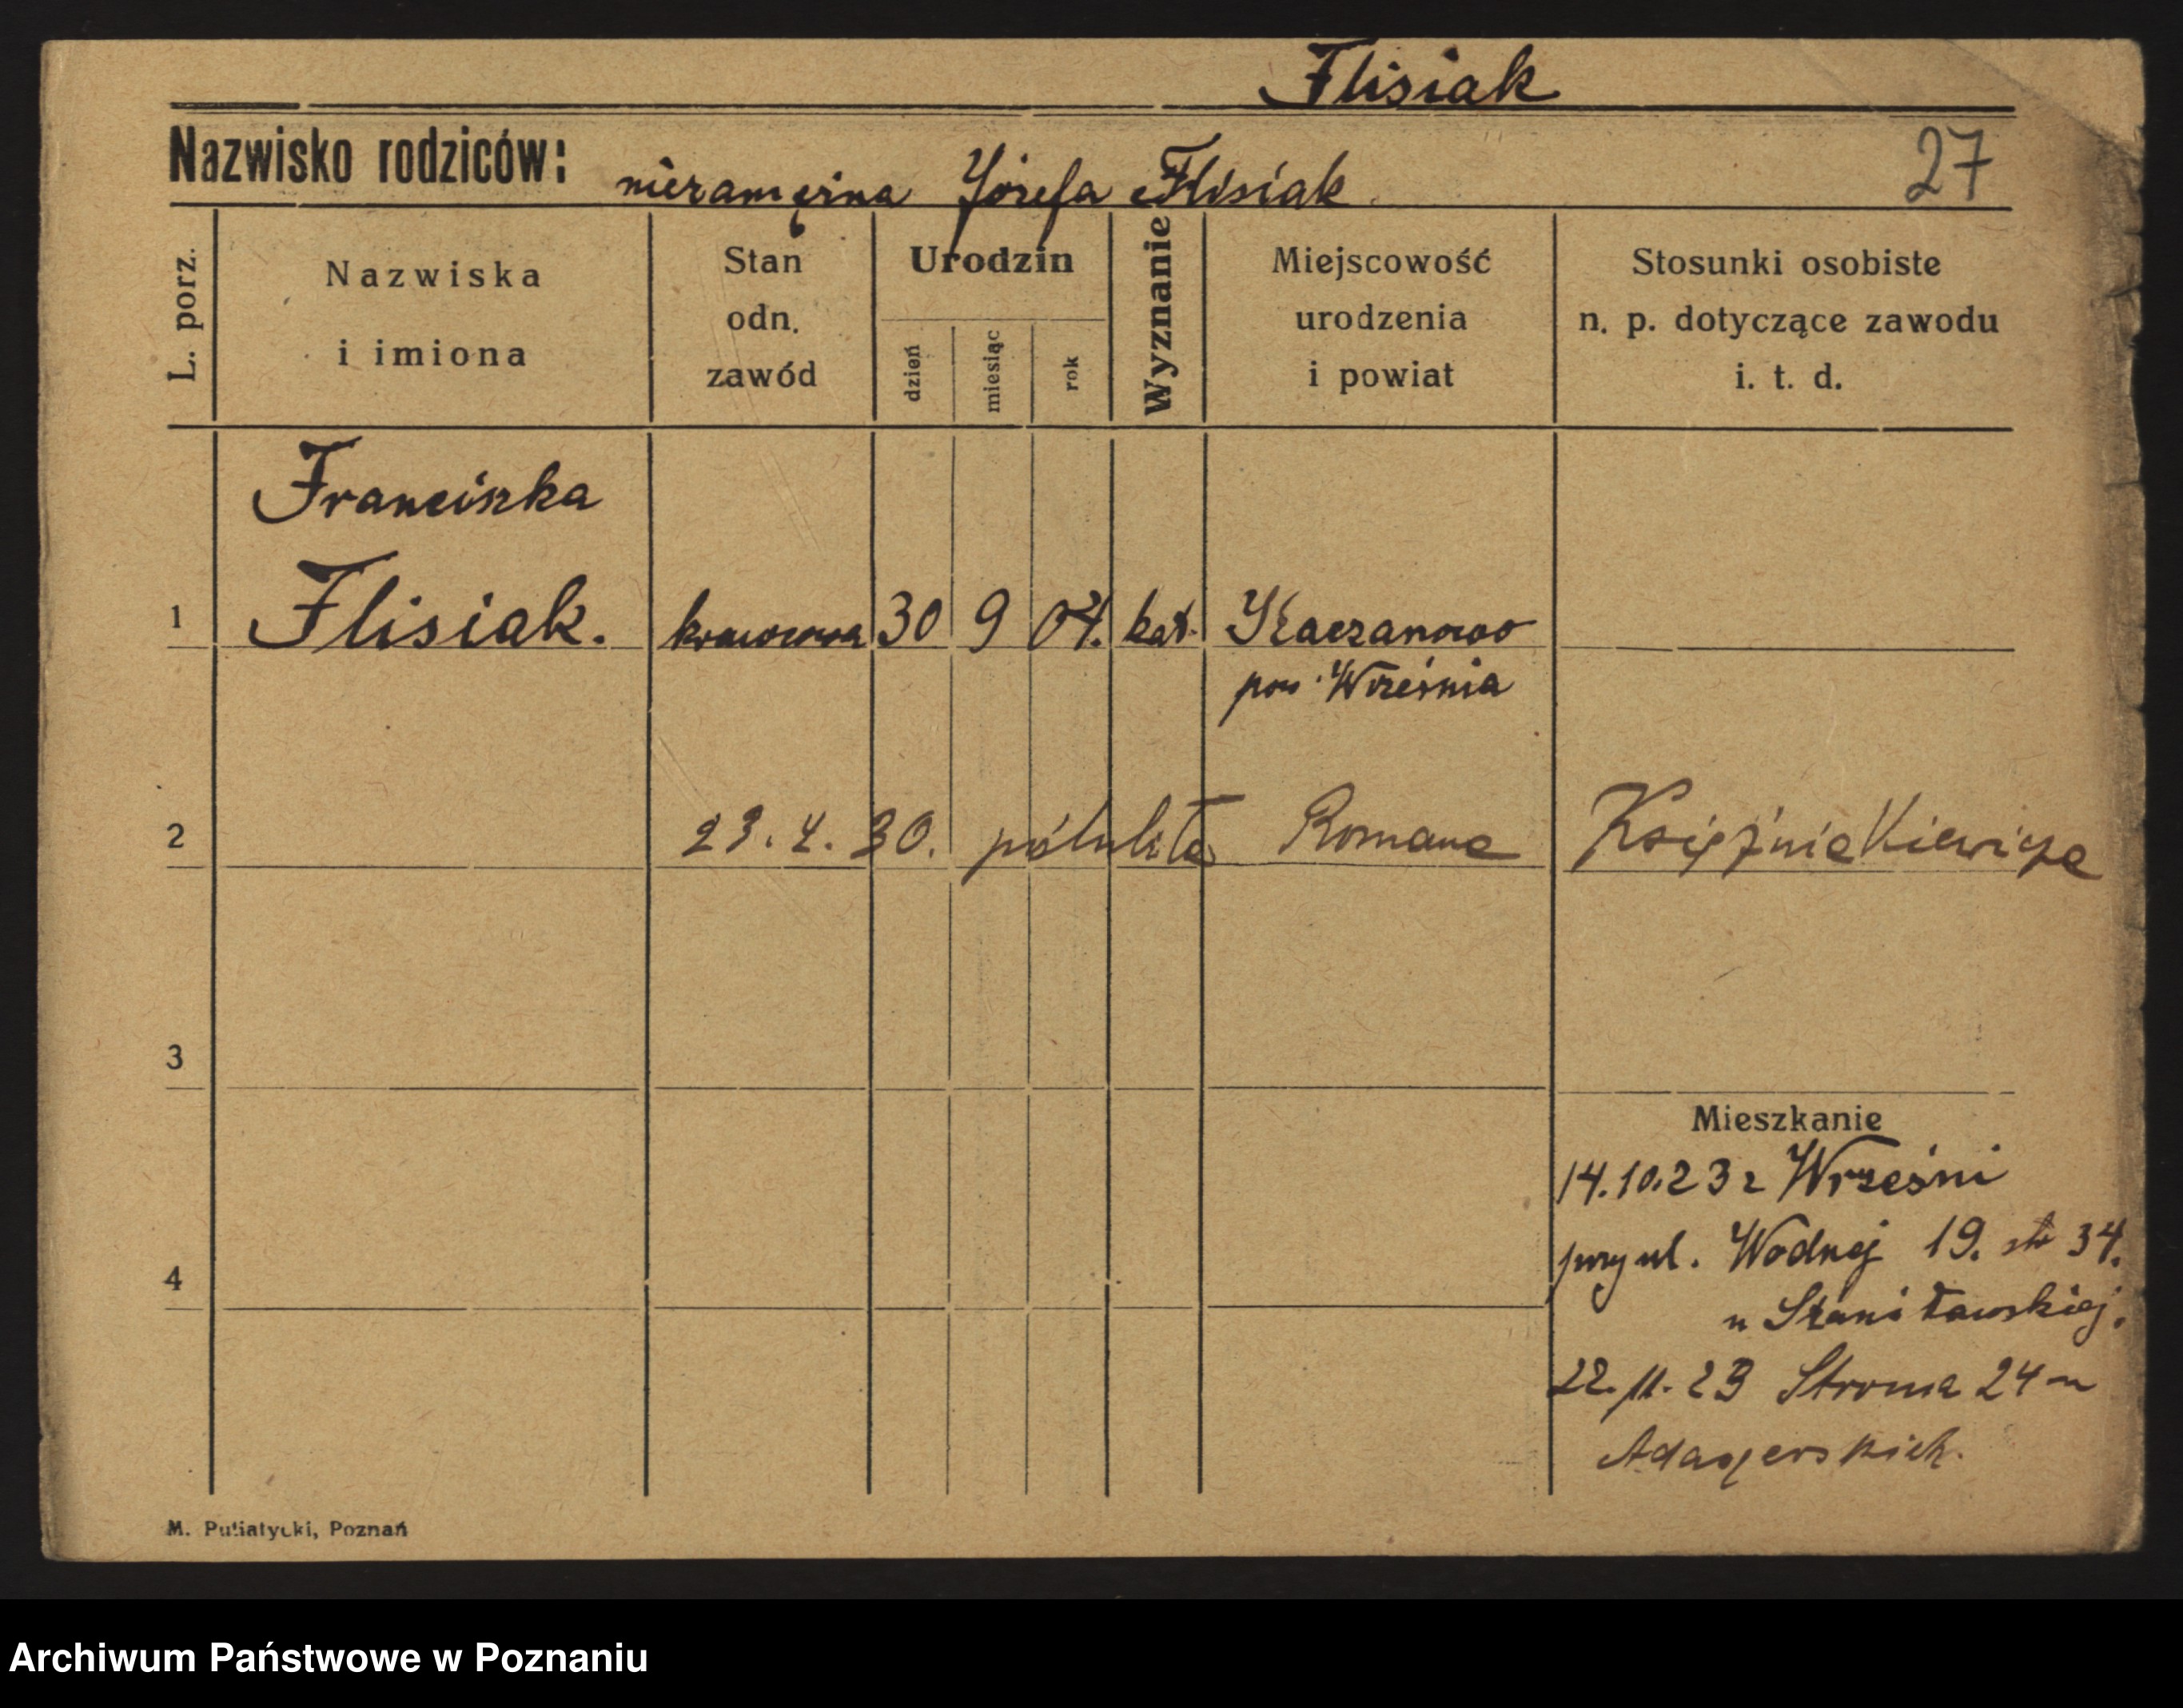 Flisiak
Nazwisko rodziców: niezamężna Józefa Flisiak
27
L. porz.
Nazwiska
i imiona
Stan
odn.
zawód
Urodzin
dzień
miesiąc
rok
Wyznanie
Miejscowość
urodzenia
i powiat
Stosunki osobiste
n. p. dotyczące zawodu
i. t. d.
Franciszka
1 Flisiak. krawcowa 30 9 04. kat. Kaczanowo
pow. Września
2 23.4.30. Romana Księżniakiewicza
3
Mieszkanie
14.10.23 z Wrześni
przy ul. Wodnej 19. 34.
4
u Stanisławskiej.
22.11.23 Stroma 24 u
M. Putiatycki, Poznań
Archiwum Państwowe w Poznaniu